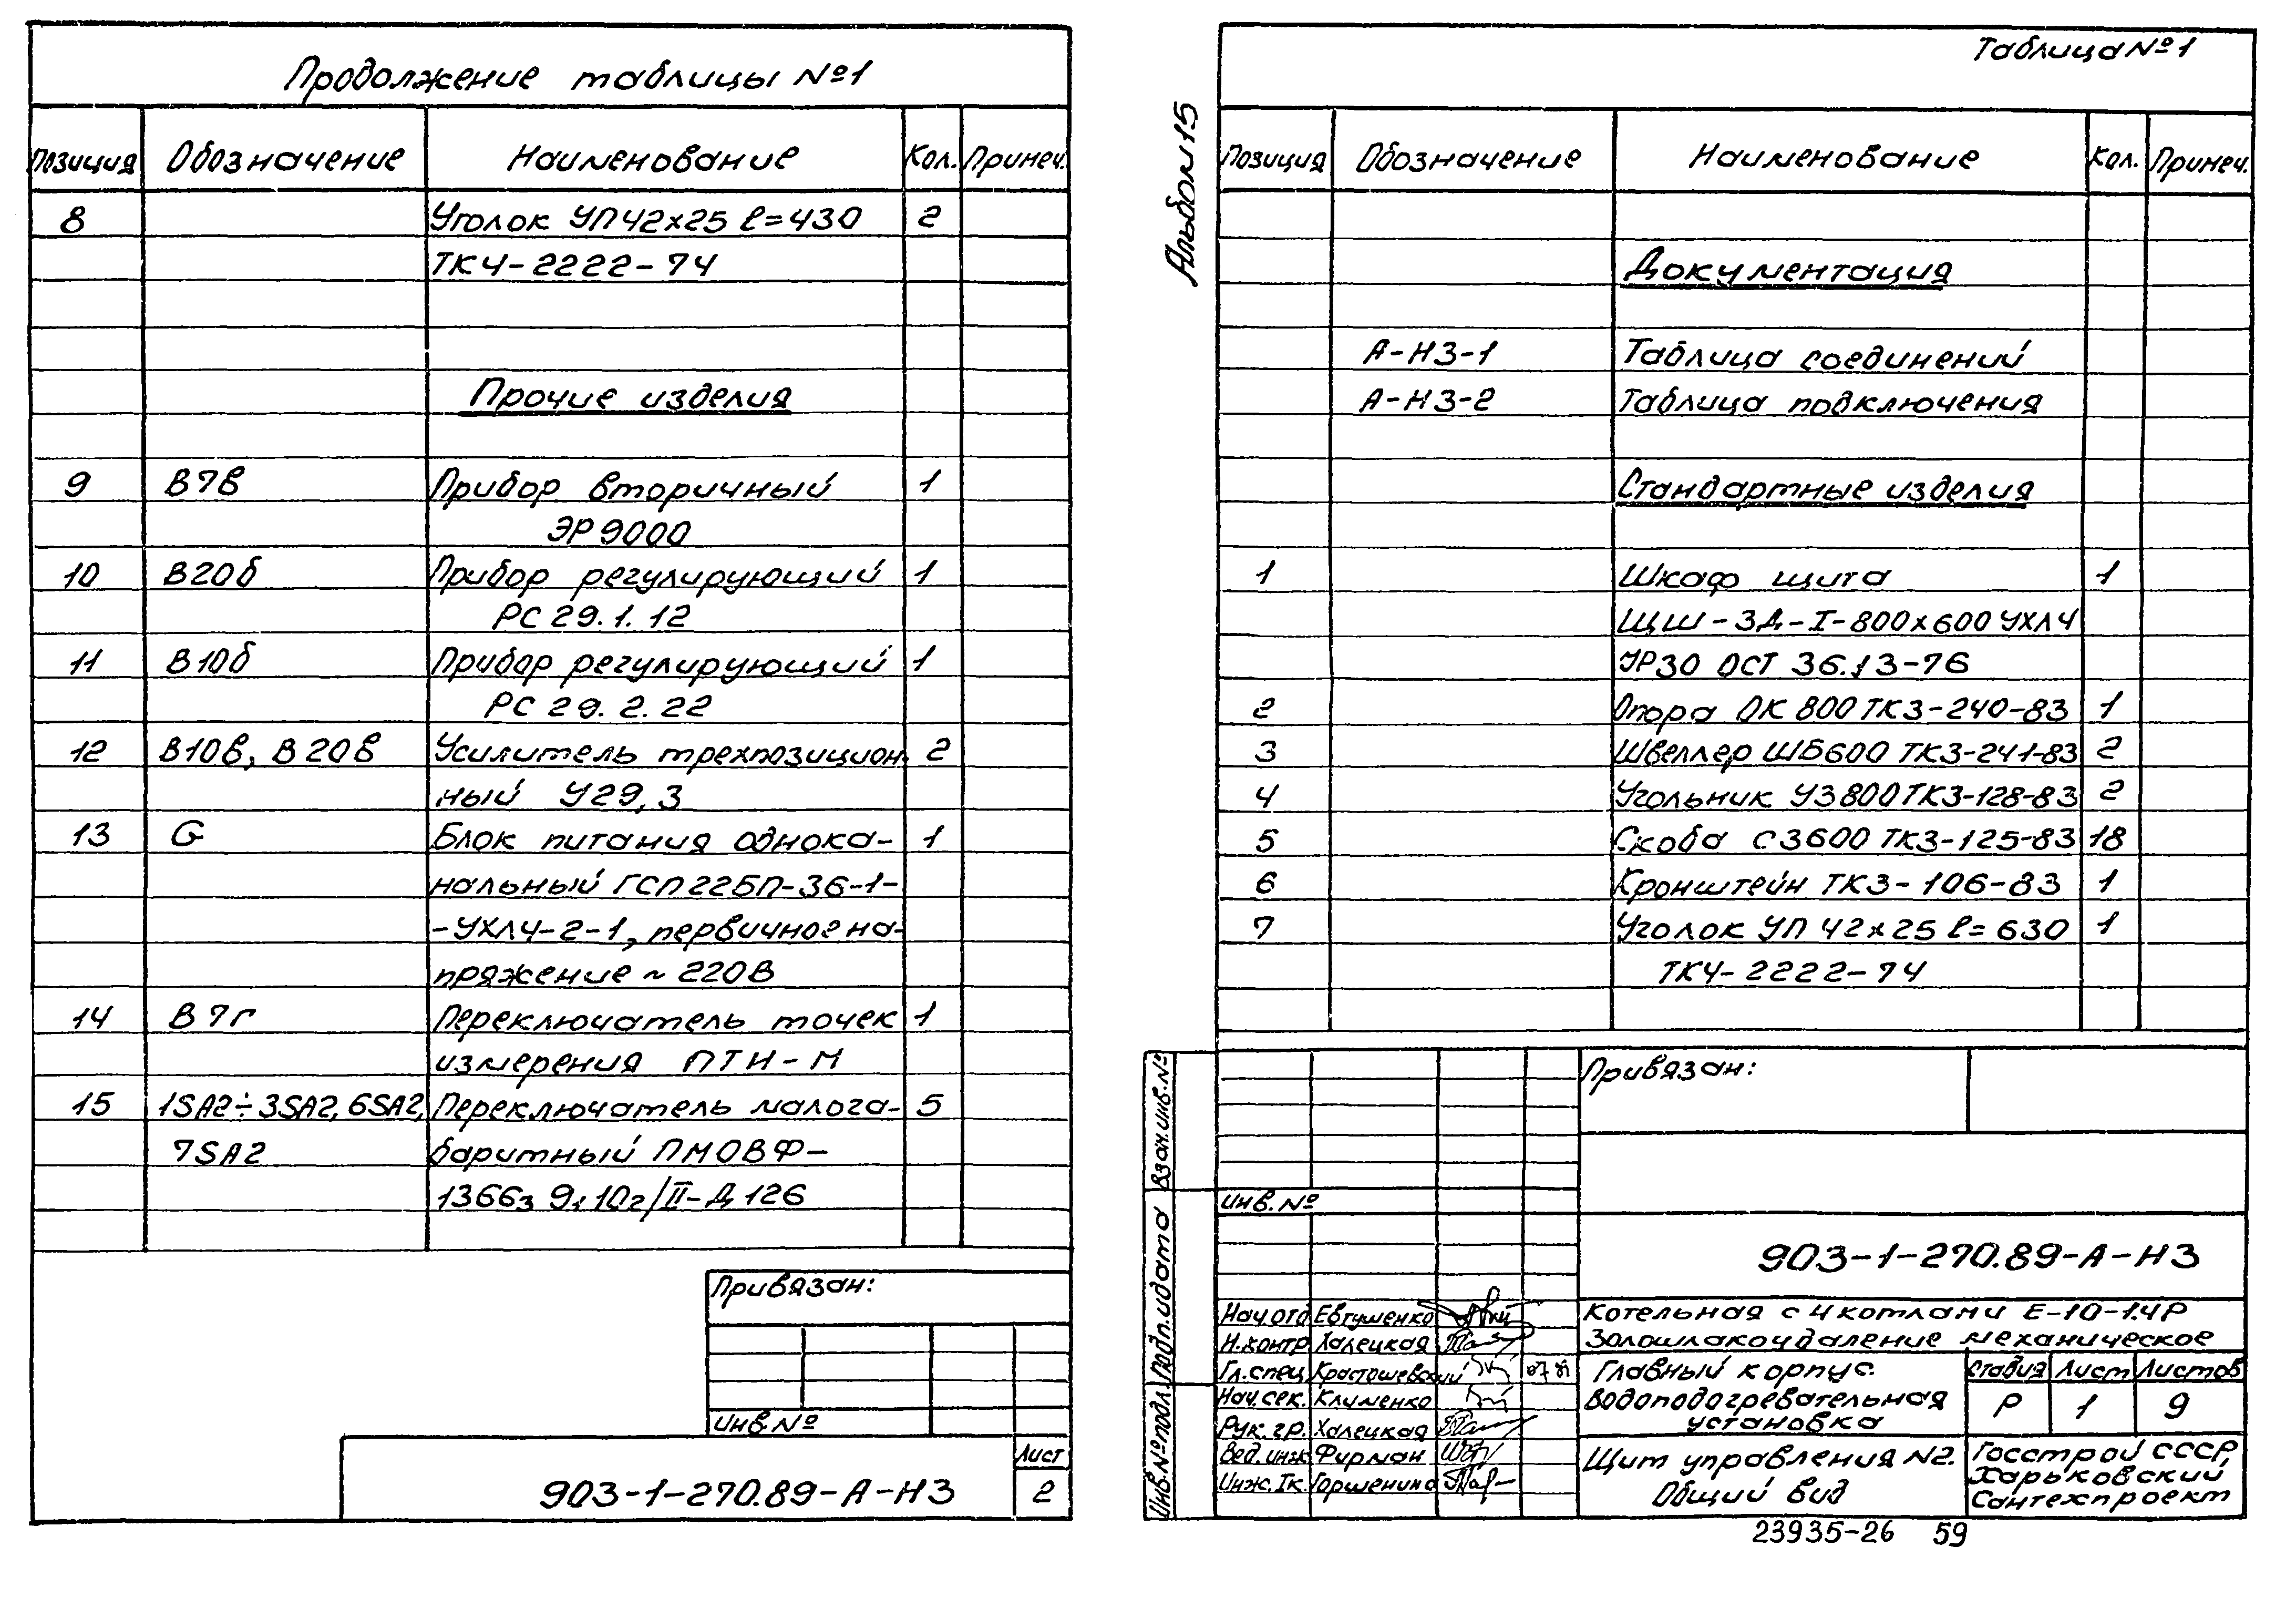 Продолжение таблицы №1
Позиция Обозначение Наименование Кол. Примеч.
8 Уголок УП 42х25 ℓ=430 2
ТК4-2222-74
Прочие изделия
9 В7в Прибор вторичный 1
ЭР 9000
10 В20б Прибор регулирующий 1
РС 29.1.12
11 В10б Прибор регулирующий 1
РС 29.2.22
12 В10в, В20в Усилитель трехпозицион- 2
ный У29,3
13 G Блок питания однока- 1
нальный ГСП 22БП-36-1-
-УХЛ4-2-1, первичное на-
пряжение ~ 220В
14 В7г Переключатель точек 1
измерения ПТИ-М
15 1SA2÷3SA2, 6SA2, Переключатель малога- 5
7SA2 баритный ПМОВФ-
1366з 9:10г/II-Д126
Привязан:
Инв.№
903-1-270.89-А-НЗ
Лист
2
Альбом 15
Таблица №1
Позиция Обозначение Наименование Кол. Примеч.
Документация
А-НЗ-1 Таблица соединений
А-НЗ-2 Таблица подключения
Стандартные изделия
1 Шкаф щита 1
ЩШ-ЗД-I-800х600 УХЛ4
УР30 ОСТ 36.13-76
2 Опора ОК 800 ТК3-240-83 1
3 Швеллер ШБ600 ТК3-241-83 2
4 Угольник УЗ800 ТК3-128-83 2
5 Скоба С3600 ТК3-125-83 18
6 Кронштейн ТК3-106-83 1
7 Уголок УП 42х25 ℓ=630 1
ТК4-2222-74
Взан.инв.№
Подп.и дата
Инв.№ подл.
Привязан:
Инв.№
903-1-270.89-А-НЗ
Нач.отд Евтушенко
Н.контр Халецкая
Гл.спец Красташевский
Нач.сек. Клименко
Рук.гр. Халецкая
Вед.инж Фирман
Инж.Iк. Горшенина
Котельная с 4 котлами Е-10-1.4Р
Золошлакоудаление механическое
Главный корпус.
Водоподогревательная
установка
Стадия Лист Листов
Р 1 9
Щит управления N2.
Общий вид
Госстрой СССР,
Харьковский
Сантехпроект
23935-26 59